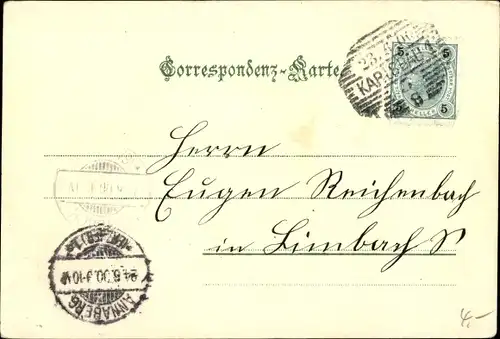 Correspondenz-Karte
KARLSBAD
5 5
5 5
HELLER
Herrn
Eugen Reichenbach
in Limbach S/
ANNABERG
24.5.00.9-10V
4,-